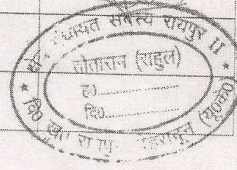 क्षेत्र पंचायत सदस्य रायपुर II
सीताराम (राहुल)
ह0
दि0
वि0 ख0 रायपुर
देहरादून (यू0के0)